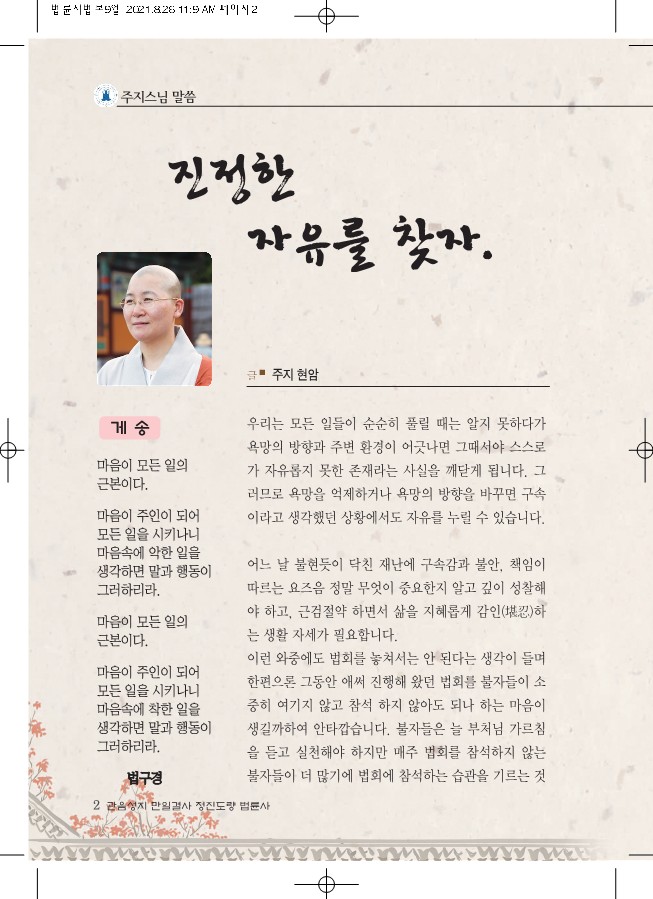 법륜사법보9월 2021.8.26 11:9 AM 페이지2
주지스님 말씀
진정한
자유를 찾자.
글 ■ 주지 현암
게 송
마음이 모든 일의
근본이다.
마음이 주인이 되어
모든 일을 시키나니
마음속에 악한 일을
생각하면 말과 행동이
그러하리라.
마음이 모든 일의
근본이다.
마음이 주인이 되어
모든 일을 시키나니
마음속에 착한 일을
생각하면 말과 행동이
그러하리라.
법구경
우리는 모든 일들이 순순히 풀릴 때는 알지 못하다가
욕망의 방향과 주변 환경이 어긋나면 그때서야 스스로
가 자유롭지 못한 존재라는 사실을 깨닫게 됩니다. 그
러므로 욕망을 억제하거나 욕망의 방향을 바꾸면 구속
이라고 생각했던 상황에서도 자유를 누릴 수 있습니다.
어느 날 불현듯이 닥친 재난에 구속감과 불안, 책임이
따르는 요즈음 정말 무엇이 중요한지 알고 깊이 성찰해
야 하고, 근검절약 하면서 삶을 지혜롭게 감인(堪忍)하
는 생활 자세가 필요합니다.
이런 와중에도 법회를 놓쳐서는 안 된다는 생각이 들며
한편으론 그동안 애써 진행해 왔던 법회를 불자들이 소
중히 여기지 않고 참석 하지 않아도 되나 하는 마음이
생길까하여 안타깝습니다. 불자들은 늘 부처님 가르침
을 듣고 실천해야 하지만 매주 법회를 참석하지 않는
불자들이 더 많기에 법회에 참석하는 습관을 기르는 것
2 관음성지 만일결사 정진도량 법륜사